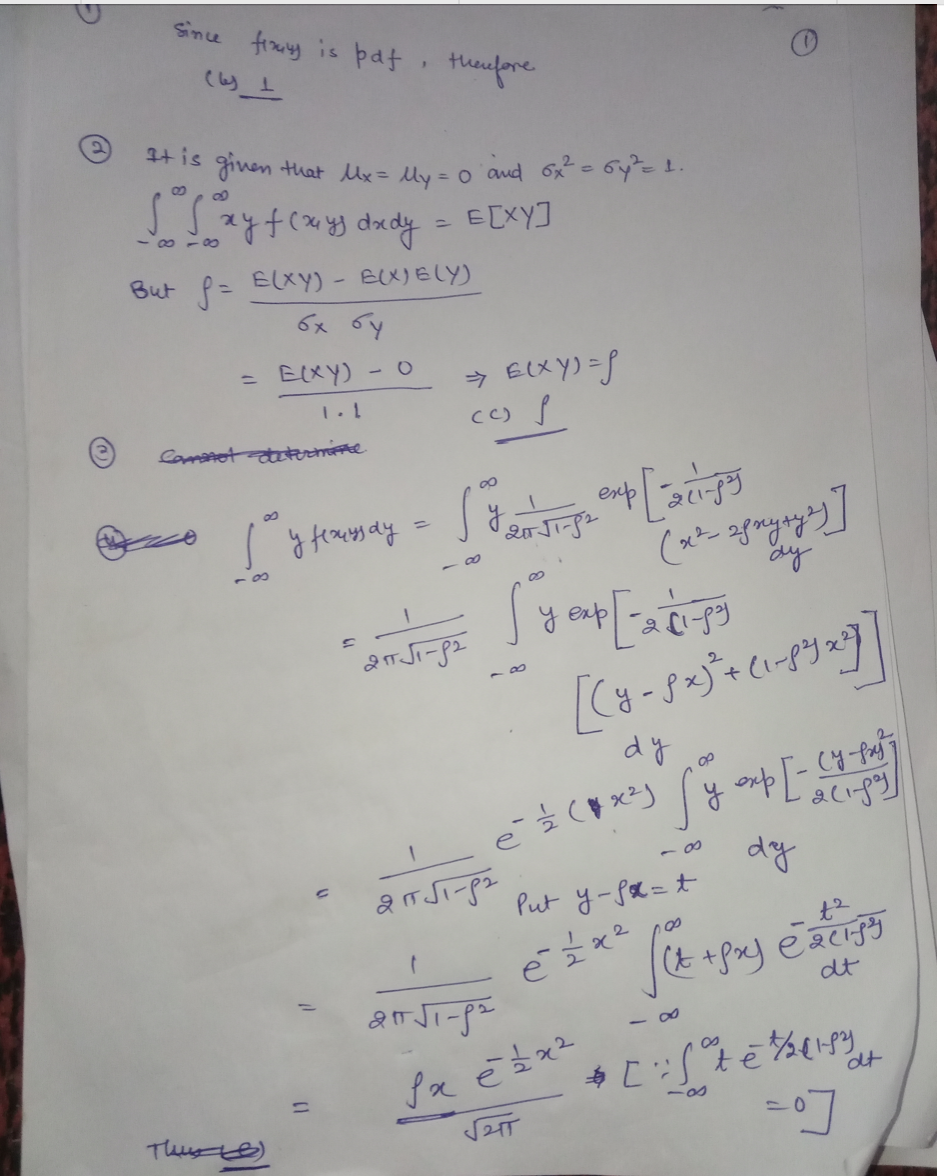 ①
①
Since f(x,y) is pdf, therefore
(b) 1
② It is given that μx = μy = 0 and σx² = σy² = 1.
∫_{-∞}^{∞} ∫_{-∞}^{∞} xy f(x,y) dxdy = E[XY]
But ρ = (E(XY) - E(X)E(Y)) / (σx σy)
= (E(XY) - 0) / (1.1) ⇒ E(XY) = ρ
(c) ρ
③ Cannot determine
∫_{-∞}^{∞} y f(x,y) dy = ∫_{-∞}^{∞} y 1/(2π√(1-ρ²)) exp[-1/(2(1-ρ²)) (x² - 2ρxy + y²)] dy
= 1/(2π√(1-ρ²)) ∫_{-∞}^{∞} y exp[-1/(2(1-ρ²)) [(y-ρx)² + (1-ρ²)x²]] dy
= 1/(2π√(1-ρ²)) e^{-1/2 (x²)} ∫_{-∞}^{∞} y exp[-(y-ρx)²/(2(1-ρ²))] dy
Put y-ρx = t
= 1/(2π√(1-ρ²)) e^{-1/2 x²} ∫_{-∞}^{∞} (t+ρx) e^{-t²/(2(1-ρ²))} dt
= ρx e^{-1/2 x²} / √2π [∵ ∫_{-∞}^{∞} t e^{-t/2(1-ρ²)} dt = 0]
Thus (c)